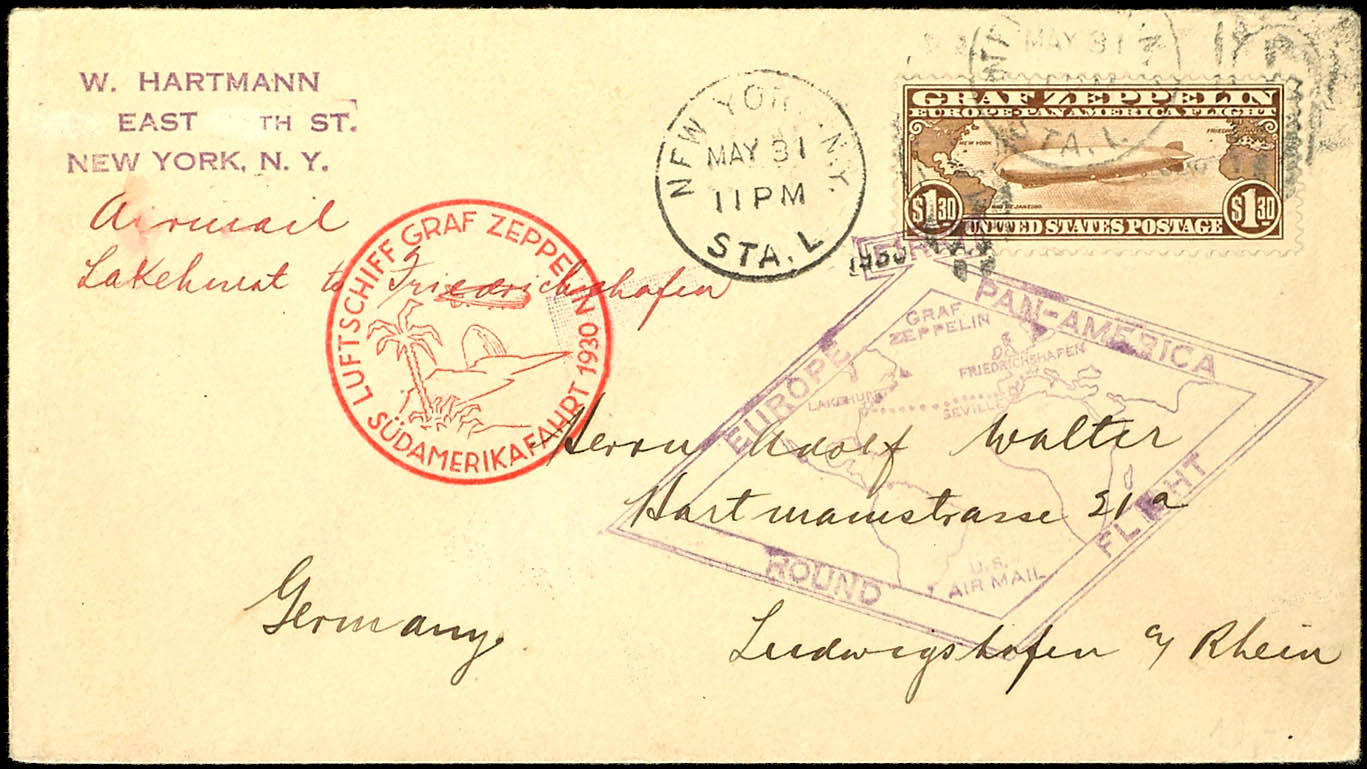 W. HARTMANN
EAST TH ST.
NEW YORK, N. Y.
Airmail
Lakehurst to Friedrichshafen
NEW YORK, N.Y.
MAY 31
11 PM
STA. L
1930
MAY 31
STA. L
GRAF ZEPPELIN
EUROPE-PAN AMERICA FLIGHT
NEW YORK
RIO DE JANEIRO
$1.30 $1.30
UNITED STATES POSTAGE
LUFTSCHIFF GRAF ZEPPELIN 1930
SÜDAMERIKAFAHRT
EUROPE
PAN-AMERICA
ROUND
FLIGHT
GRAF
ZEPPELIN
FRIEDRICHSHAFEN
LAKEHURST
SEVILLE
U.S.
AIR MAIL
Herrn Adolf Walter
Hartmannstrasse 21a
Ludwigshafen a/ Rhein
Germany